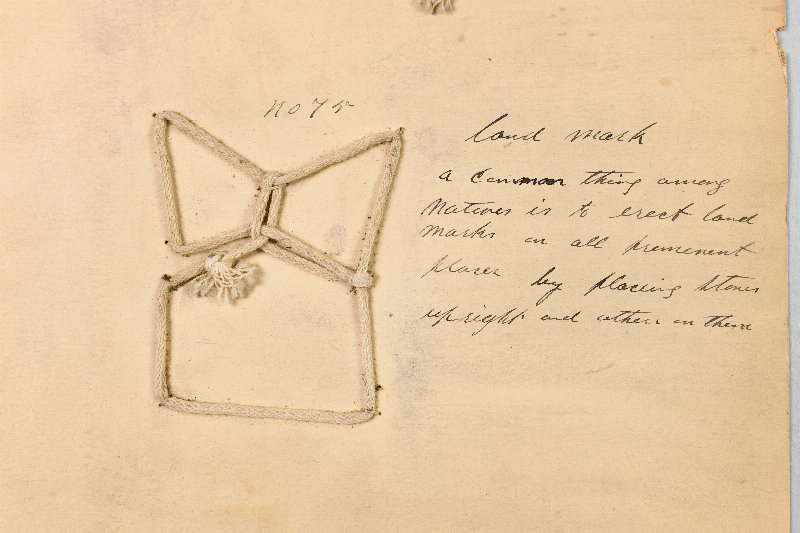 no 75
land mark
a common thing among
Natives is to erect land
marks on all premenent
places by placing stones
upright and others on them